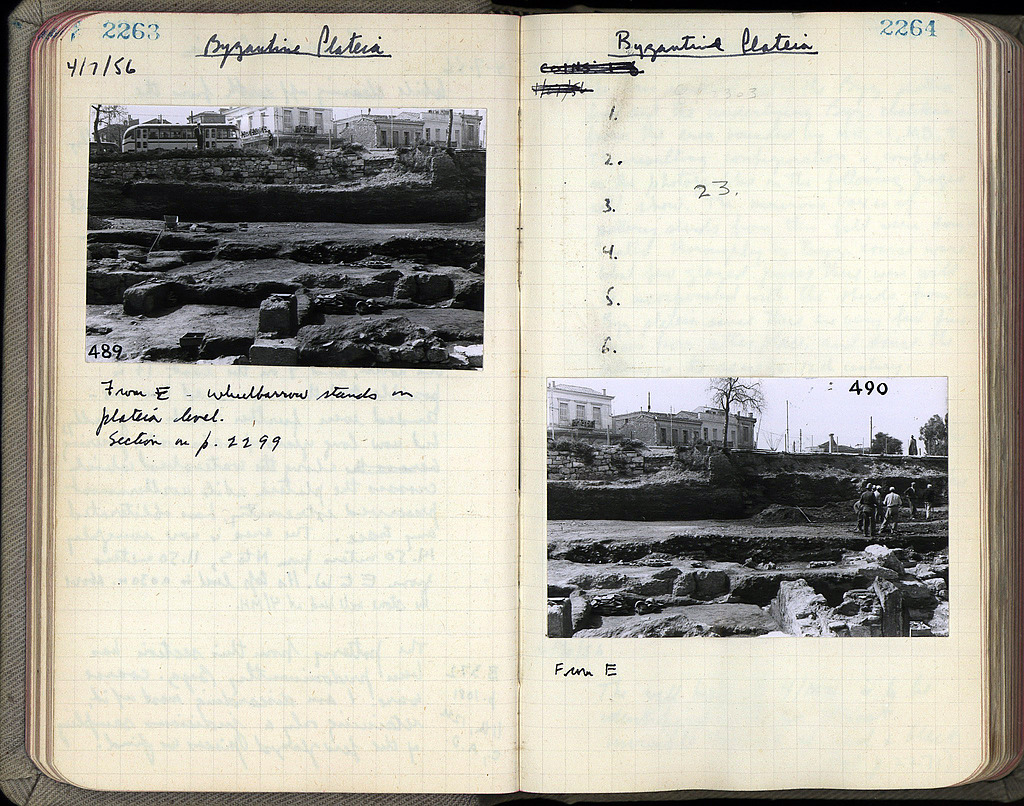 2263
Byzantine Plateia
4/7/56
489
From E - wheelbarrow stands on
plateia level.
Section on p. 2299
2264
Byzantine Plateia
1.
2.
23.
3.
4.
5.
6.
490
From E